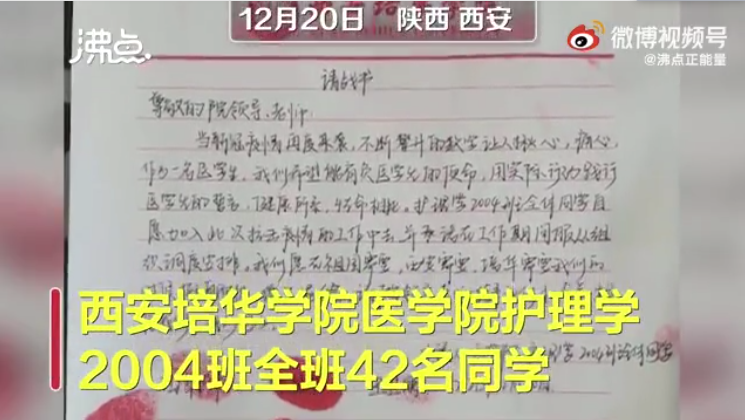 沸点
12月20日 陕西 西安
微博视频号
@沸点正能量
请战书
尊敬的院领导、老师:
当新冠疫情再度来袭,不断攀升的数字让人揪心,痛心,
作为一名医学生,我们希望能肩负医学生的使命,用实际行动践行
医学生的誓言,健康所系,性命相托。护理学2004班全体同学自
愿加入此次抗击病毒的工作中去,并承诺在工作期间服从组
织调度安排。我们愿在祖国需要,西安需要,培华需要我们的
西安培华学院医学院护理学
2004班全班42名同学
2004班全体同学